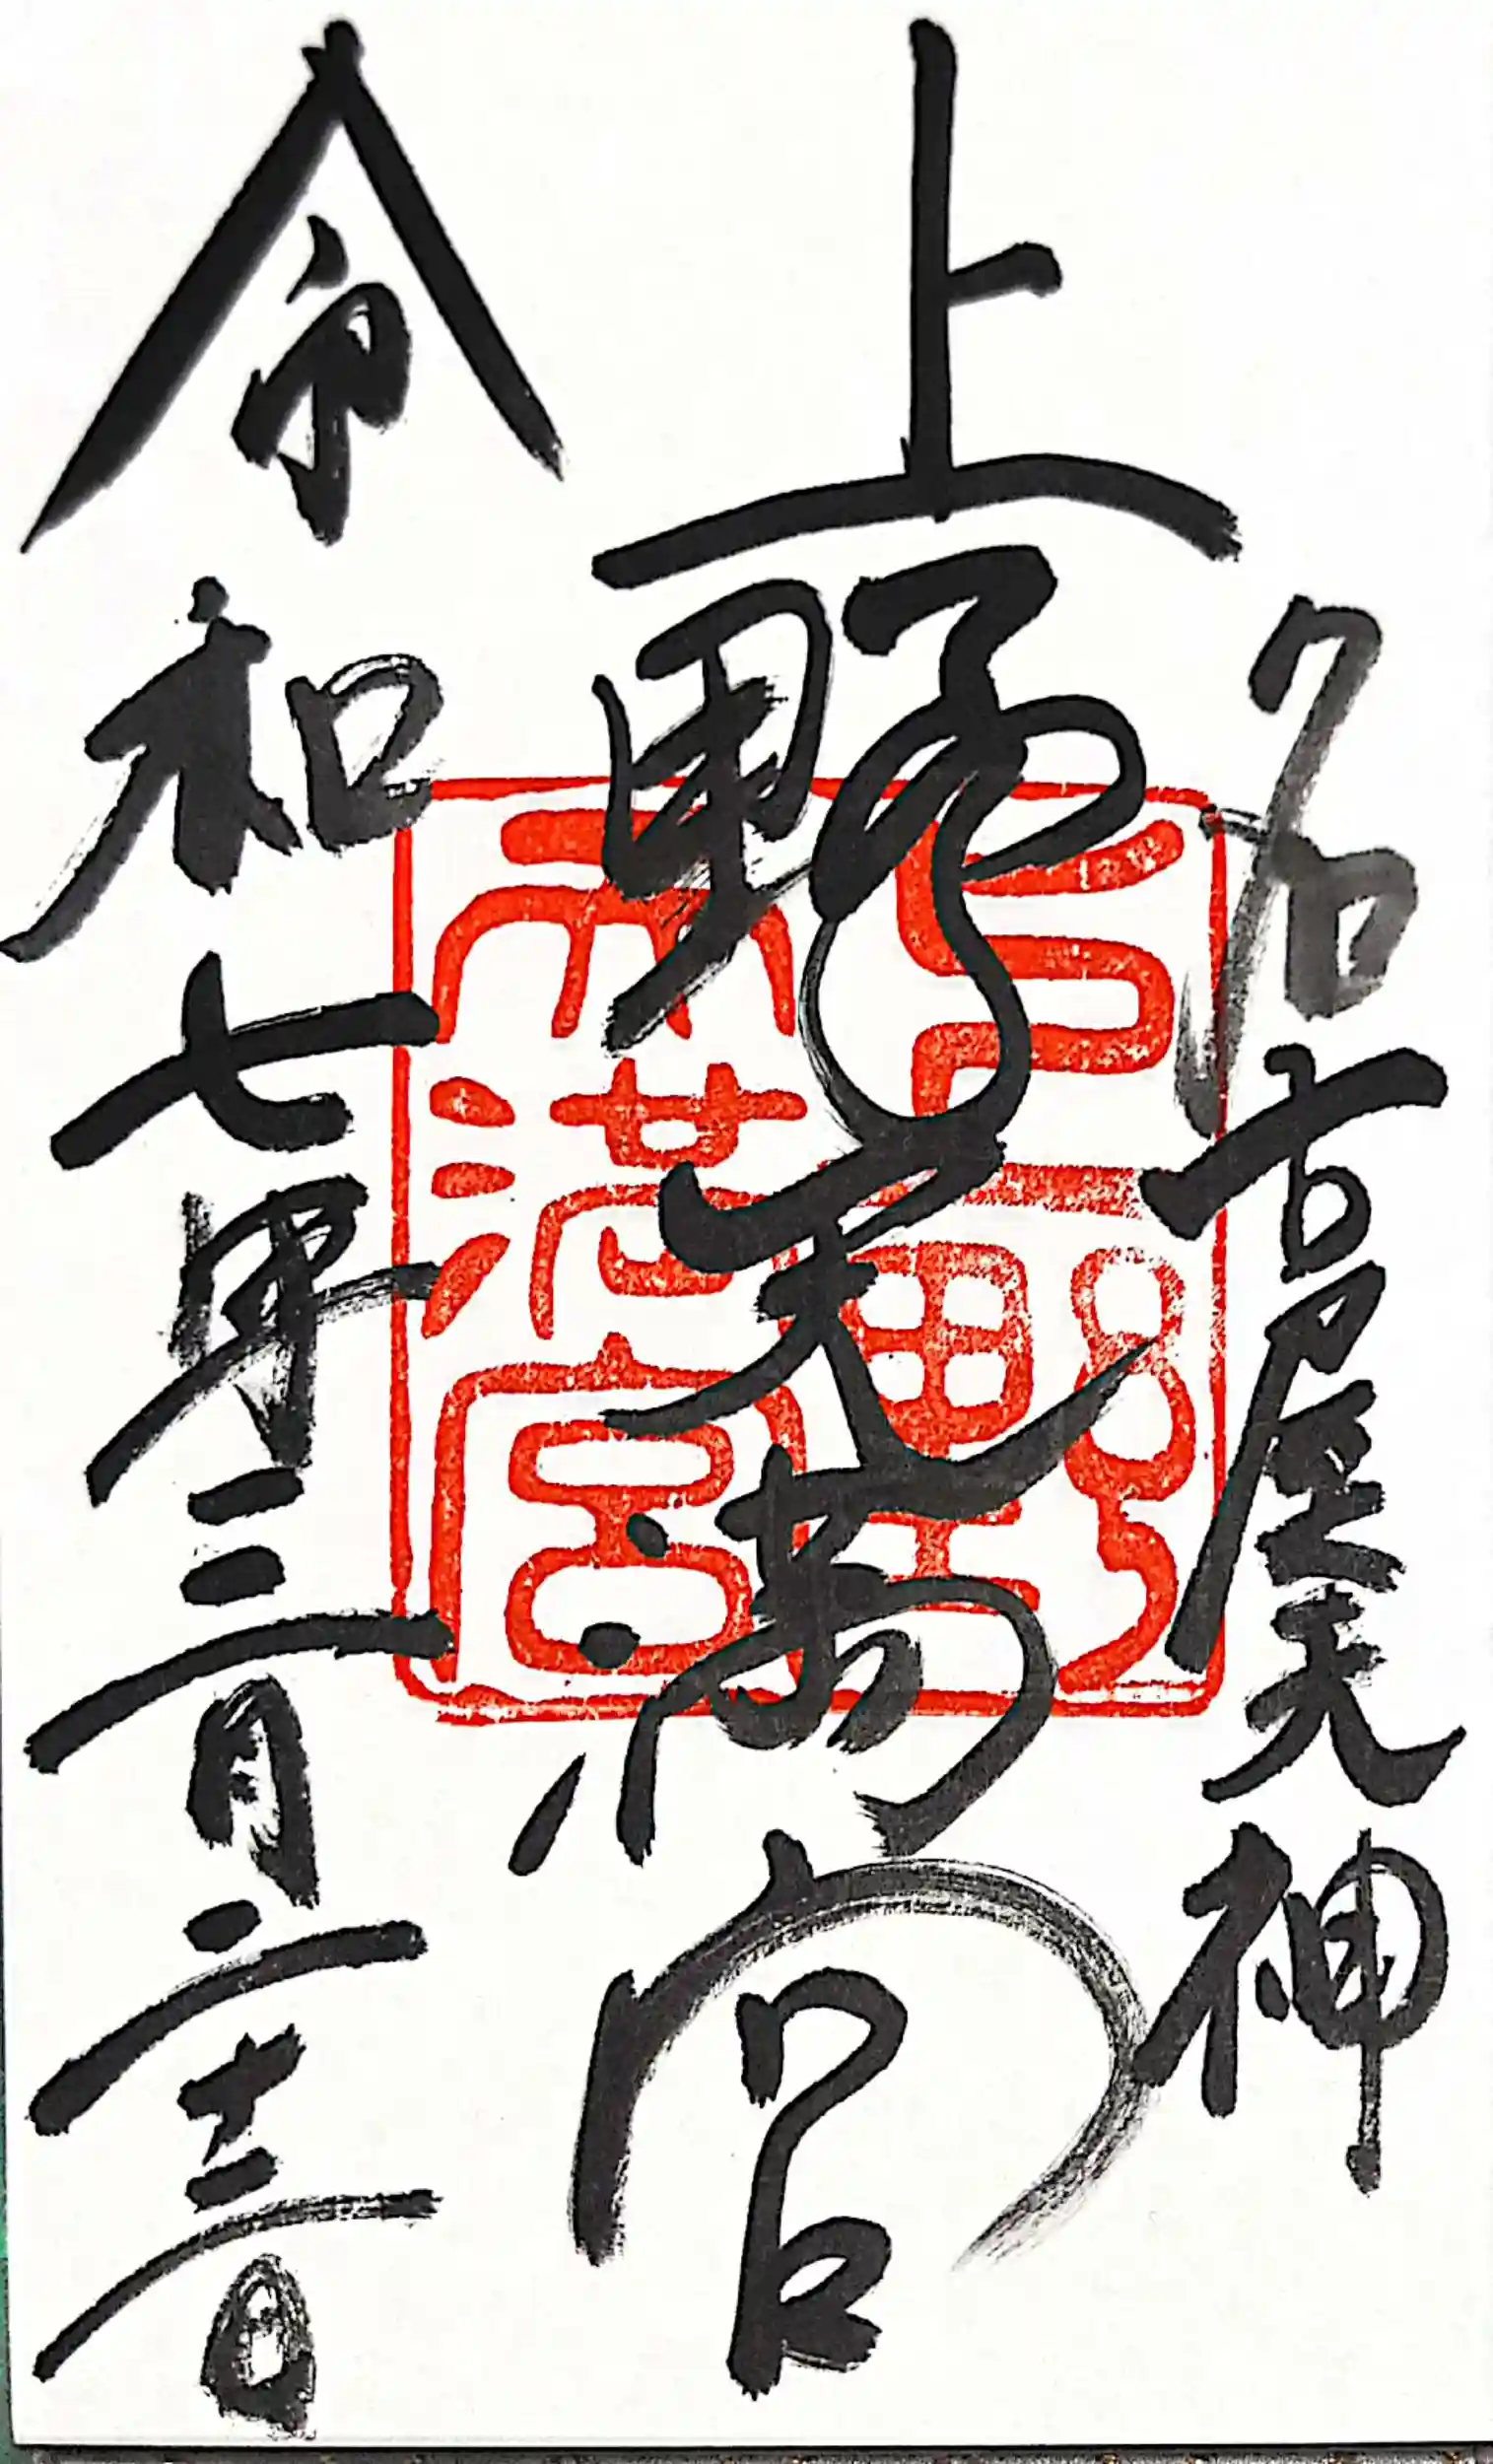 名古屋天神
上野天満宮
令和七年三月二十二日
上野天満宮